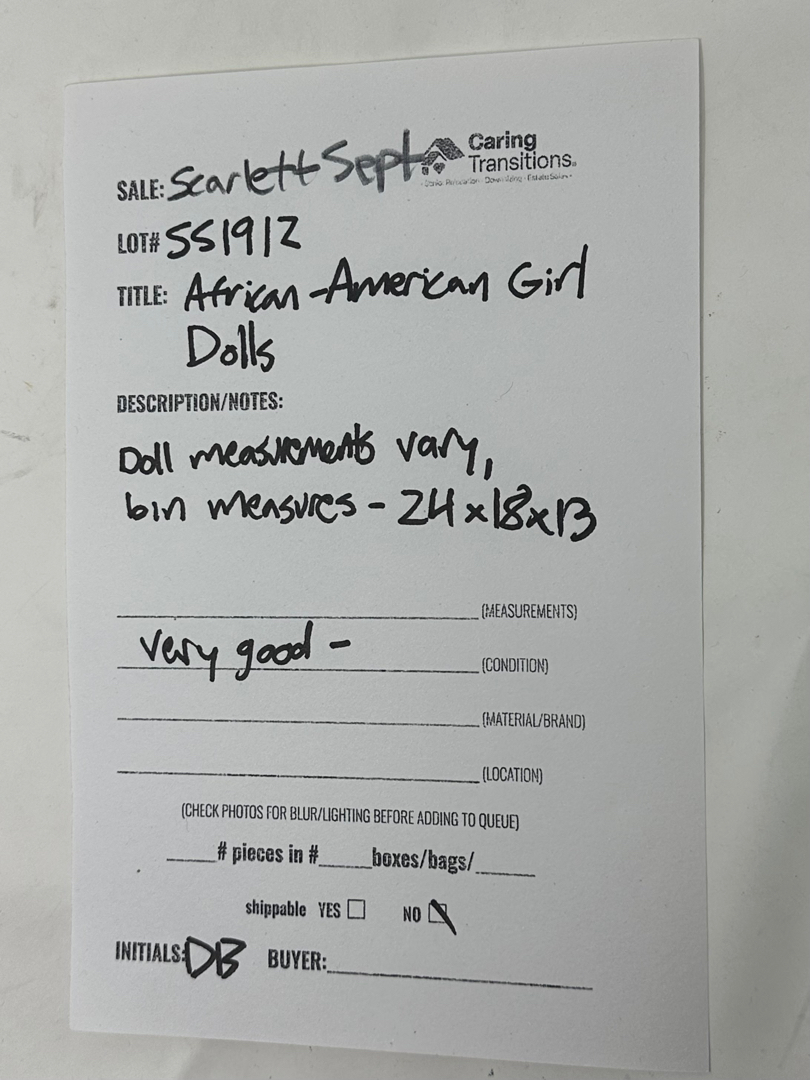 Caring
Transitions®
SALE: Scarlett Sept
LOT# SS1912
TITLE: African-American Girl
Dolls
DESCRIPTION/NOTES:
Doll measurements vary,
bin measures - 24x18x13
(MEASUREMENTS)
very good - (CONDITION)
(MATERIAL/BRAND)
(LOCATION)
(CHECK PHOTOS FOR BLUR/LIGHTING BEFORE ADDING TO QUEUE)
# pieces in # boxes/bags/
shippable YES NO
INITIALS: DB BUYER: